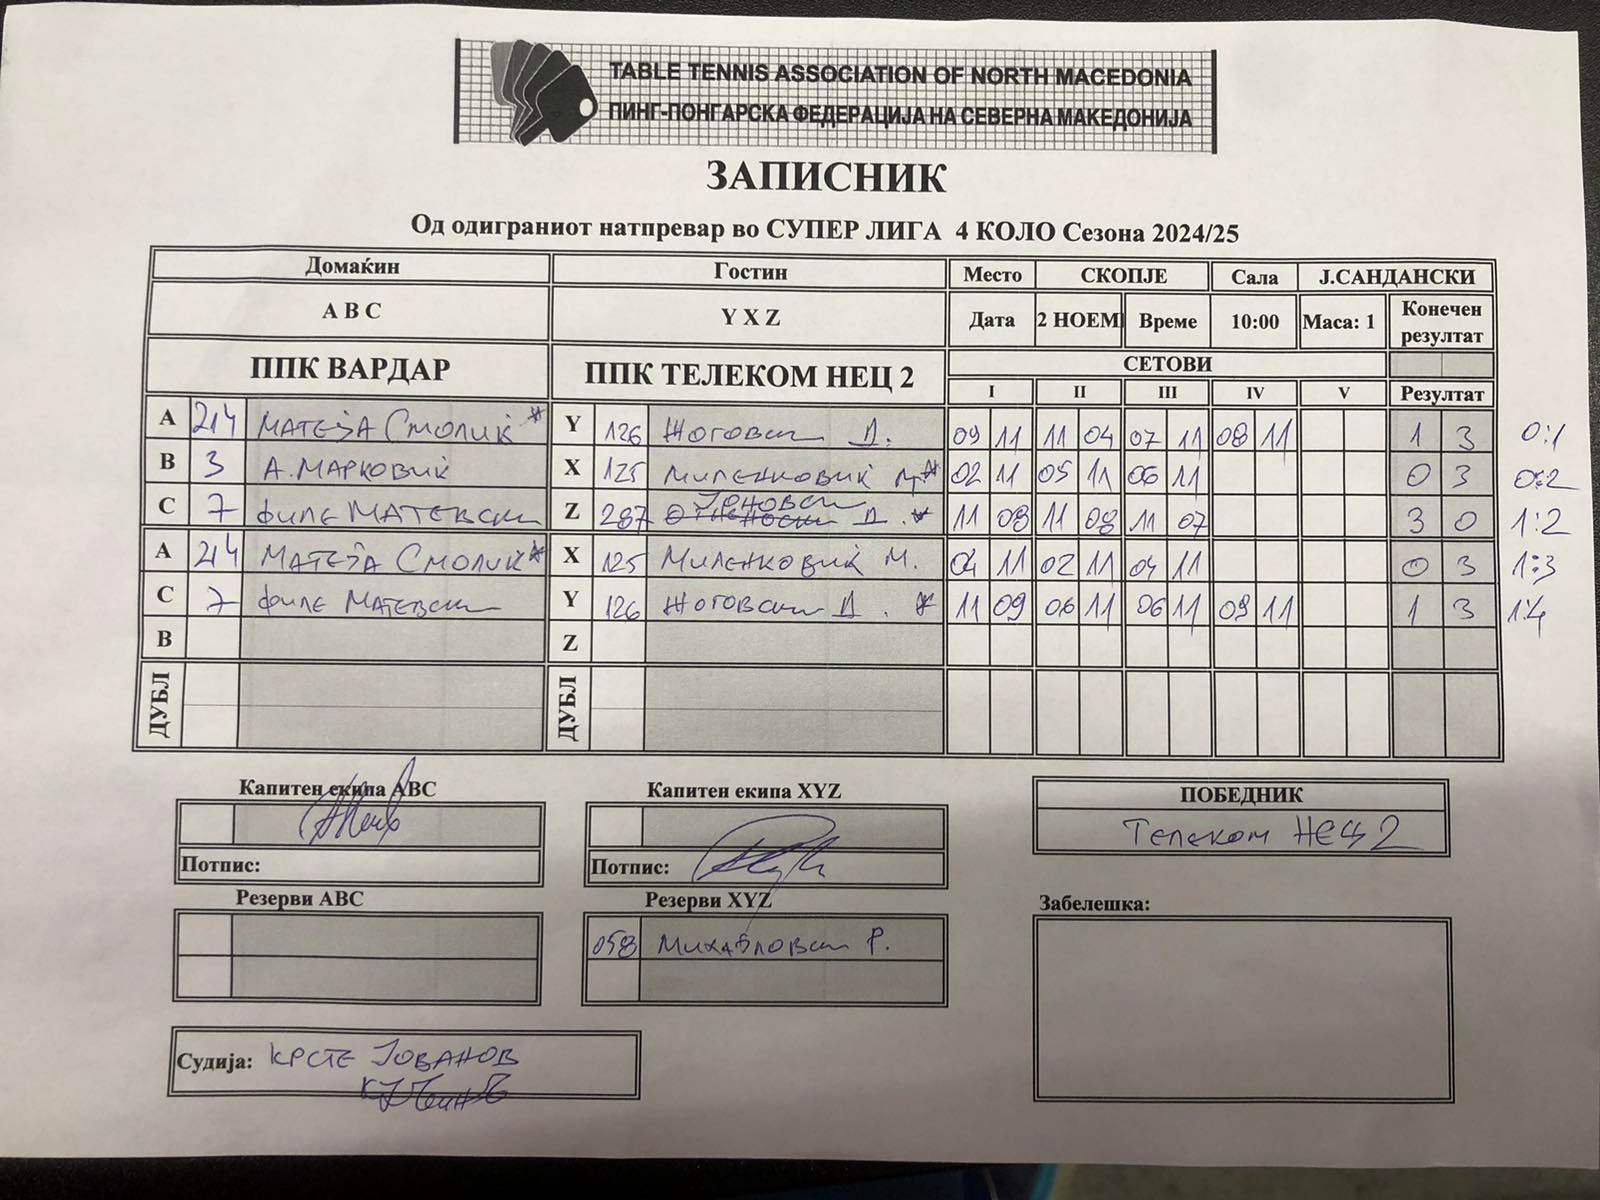 TABLE TENNIS ASSOCIATION OF NORTH MACEDONIA
ПИНГ-ПОНГАРСКА ФЕДЕРАЦИЈА НА СЕВЕРНА МАКЕДОНИЈА
ЗАПИСНИК
Од одиграниот натпревар во СУПЕР ЛИГА 4 КОЛО Сезона 2024/25
Домаќин Гостин Место СКОПЈЕ Сала Ј.САНДАНСКИ
A B C Y X Z Дата 2 НОЕМ Време 10:00 Маса: 1 Конечен резултат
ППК ВАРДАР ППК ТЕЛЕКОМ НЕЦ 2 СЕТОВИ
I II III IV V Резултат
A 214 МАТЕЈА СМОЛИЌ* Y 126 ЖОГОВСКИ Д. 09 11 11 04 07 11 08 11 1 3 0:1
B 3 А.МАРКОВИЌ X 125 МИЛЕНКОВИЌ М* 02 11 05 11 06 11 0 3 0:2
C 7 ФИЛЕ МАТЕВСКИ Z 287 Д.* 11 08 11 08 11 07 3 0 1:2
A 214 МАТЕЈА СМОЛИЌ* X 125 МИЛЕНКОВИЌ М. 04 11 02 11 04 11 0 3 1:3
C 7 ФИЛЕ МАТЕВСКИ Y 126 ЖОГОВСКИ Д.* 11 09 06 11 06 11 09 11 1 3 1:4
B Z
ДУБЛ ДУБЛ
Капитен екипа ABC Капитен екипа XYZ ПОБЕДНИК
ТЕЛЕКОМ НЕЦ 2
Потпис: Потпис:
Резерви ABC Резерви XYZ Забелешка:
058 МИХАЈЛОВСКИ Р.
Судија: КРСТЕ ЈОВАНОВ